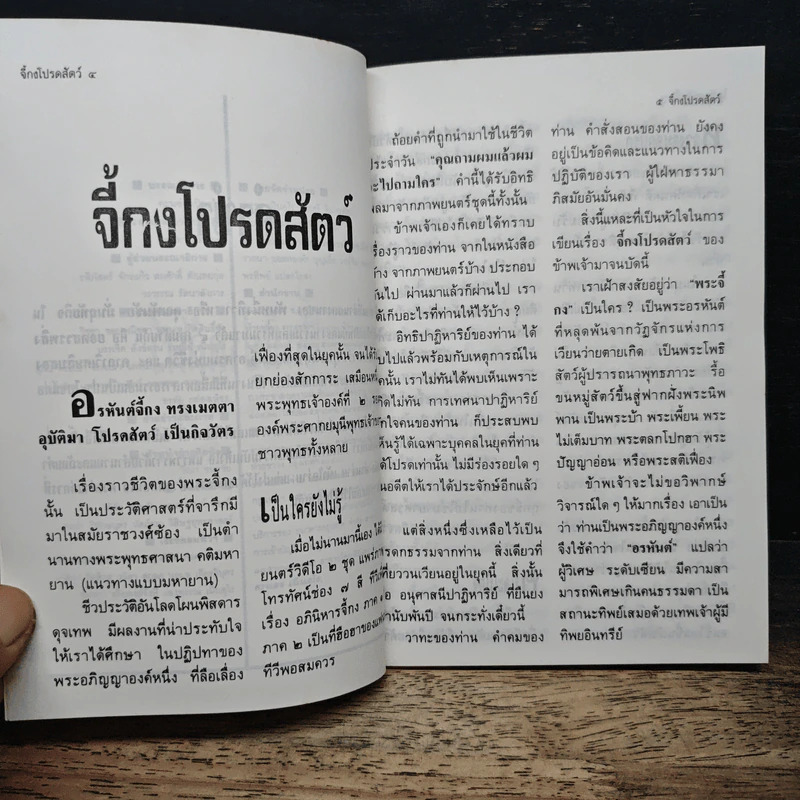 จี้กงโปรดสัตว์ ๔
จี้กงโปรดสัตว์
อรหันต์จี้กง ทรงเมตตา
อุบัติมา โปรดสัตว์ เป็นกิจวัตร
เรื่องราวชีวิตของพระจี้กง
นั้น เป็นประวัติศาสตร์ที่จารึกมี
มาในสมัยราชวงศ์ซ้อง เป็นตำ
นานทางพระพุทธศาสนา คติมหา
ยาน (แนวทางแบบมหายาน)
ชีวประวัติอันโลดโผนพิสดาร
ดุจเทพ มีผลงานที่น่าประทับใจ
ให้เราได้ศึกษา ในปฏิปทาของ
พระอภิญญาองค์หนึ่ง ที่ลือเลื่อง
เฟื่องที่สุดในยุคนั้น จนได้
ยกย่องสักการะ เสมือน
พระพุทธเจ้าองค์ที่ ๒
องค์พระศากยมุนีพุทธเจ้า
ชาวพุทธทั้งหลาย
เป็นใครยังไม่รู้
เมื่อไม่นานมานี้เอง ได้
ยนตร์วิดีโอ ๒ ชุด แพร่
โทรทัศน์ช่อง ๗ สี
เรื่อง อภินิหารจี้กง ภาค
ภาค ๒ เป็นที่ฮือฮาของ
ทีวีพอสมควร
๕ จี้กงโปรดสัตว์
ถ้อยคำที่ถูกนำมาใช้ในชีวิต
ประจำวัน "คุณถามผมแล้วผม
จะไปถามใคร" คำนี้ได้รับอิทธิ
พลมาจากภาพยนตร์ชุดนี้ทั้งนั้น
ข้าพเจ้าเองก็เคยได้ทราบ
เรื่องราวของท่าน จากในหนังสือ
บ้าง จากภาพยนตร์บ้าง ประกอบ
กันไป ผ่านมาแล้วก็ผ่านไป เรา
ได้เก็บอะไรที่ท่านให้ไว้บ้าง ?
อิทธิปาฏิหาริย์ของท่าน ได้
ไปแล้วพร้อมกับเหตุการณ์ใน
ยุคนั้น เราไม่ทันได้พบเห็นเพราะ
เกิดไม่ทัน การเทศนาปาฏิหาริย์
ใจคนของท่าน ก็ประสบพบ
เห็นรู้ได้เฉพาะบุคคลในยุคที่ท่าน
ได้โปรดเท่านั้น ไม่มีร่องรอยใด ๆ
ในอดีตให้เราได้ประจักษ์อีกแล้ว
แต่สิ่งหนึ่งซึ่งเหลือไว้เป็น
มรดกธรรมจากท่าน สิ่งเดียวที่
เที่ยววนเวียนอยู่ในยุคนี้ สิ่งนั้น
คือ อนุศาสนีปาฏิหาริย์ ที่ยืนยง
มานับพันปี จนกระทั่งเดี๋ยวนี้
วาทะของท่าน คำคมของ
ท่าน คำสั่งสอนของท่าน ยังคง
อยู่เป็นข้อคิดและแนวทางในการ
ปฏิบัติของเรา ผู้ใฝ่หาธรรมา
ภิสมัยอันมั่นคง
สิ่งนี้แหละที่เป็นหัวใจในการ
เขียนเรื่อง จี้กงโปรดสัตว์ ของ
ข้าพเจ้ามาจนบัดนี้
เราเฝ้าสงสัยอยู่ว่า "พระจี้
กง" เป็นใคร ? เป็นพระอรหันต์
ที่หลุดพ้นจากวัฏจักรแห่งการ
เวียนว่ายตายเกิด เป็นพระโพธิ
สัตว์ผู้ปรารถนาพุทธภาวะ รื้อ
ขนหมู่สัตว์ขึ้นสู่ฟากฝั่งพระนิพ
พาน เป็นพระบ้า พระเพี้ยน พระ
ไม่เต็มบาท พระตลกโปกฮา พระ
ปัญญาอ่อน หรือพระสติเฟื่อง
ข้าพเจ้าจะไม่ขอวิพากษ์
วิจารณ์ใด ๆ ให้มากเรื่อง เอาเป็น
ว่า ท่านเป็นพระอภิญญาองค์หนึ่ง
จึงใช้คำว่า "อรหันต์" แปลว่า
ผู้วิเศษ ระดับเซียน มีความสา
มารถพิเศษเกินคนธรรมดา เป็น
สถานะทิพย์เสมอด้วยเทพเจ้าผู้มี
ทิพยอินทรีย์